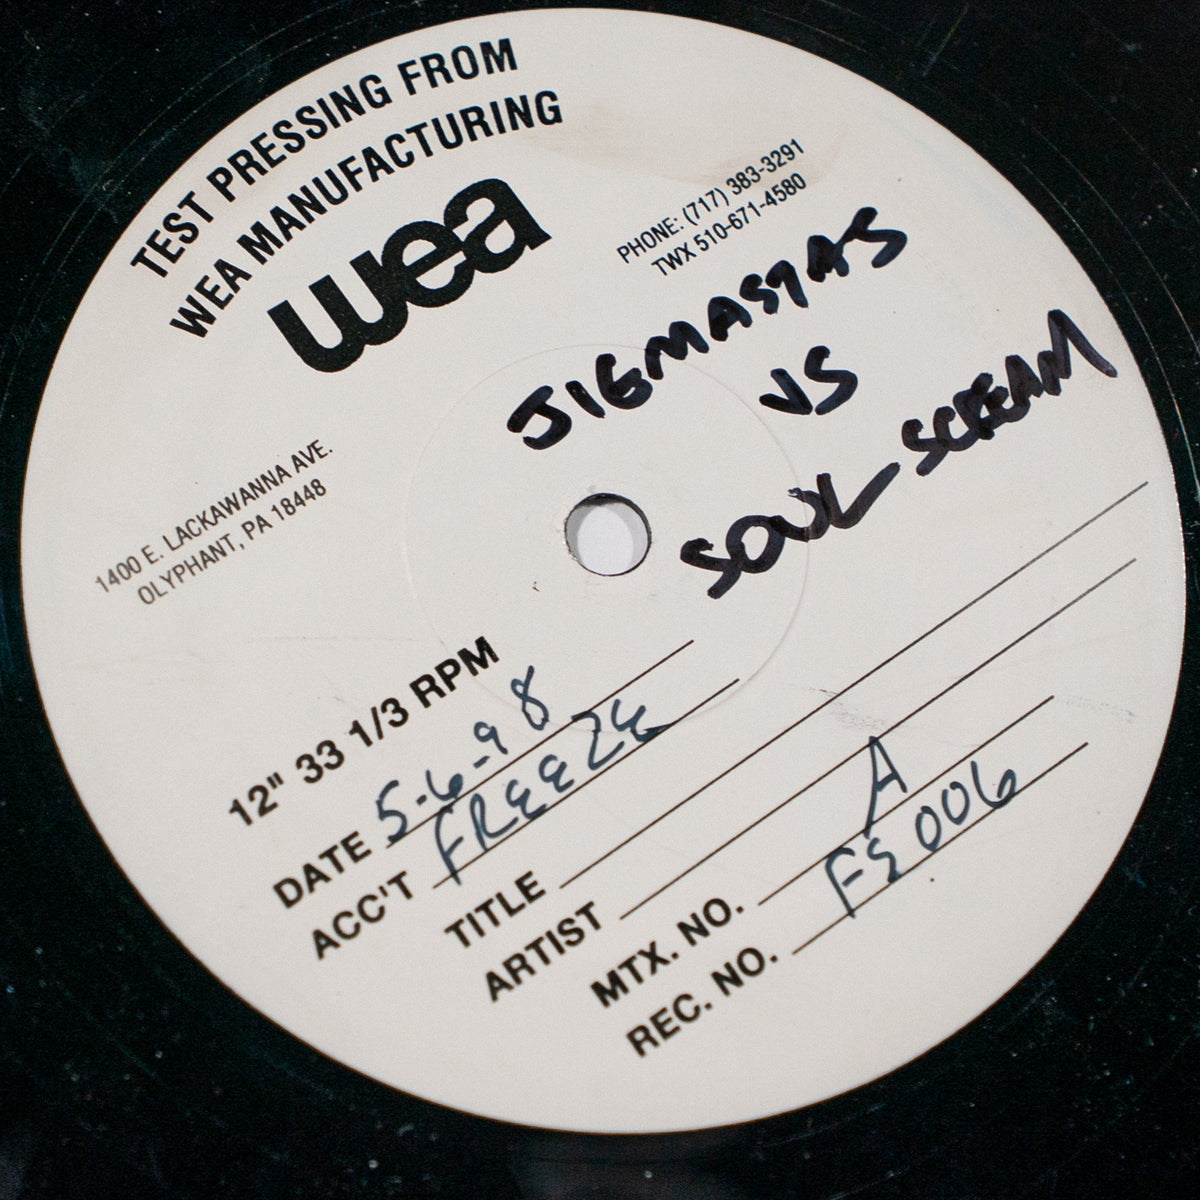 TEST PRESSING FROM
WEA MANUFACTURING
wea
PHONE: (717) 383-3291
TWX 510-671-4580
JIGMASTAS
VS
SOUL SCREAM
1400 E. LACKAWANNA AVE.
OLYPHANT, PA 18448
12" 33 1/3 RPM
DATE 5-6-98
ACC'T FREEZE
TITLE
ARTIST
MTX. NO. A
REC. NO. FE006